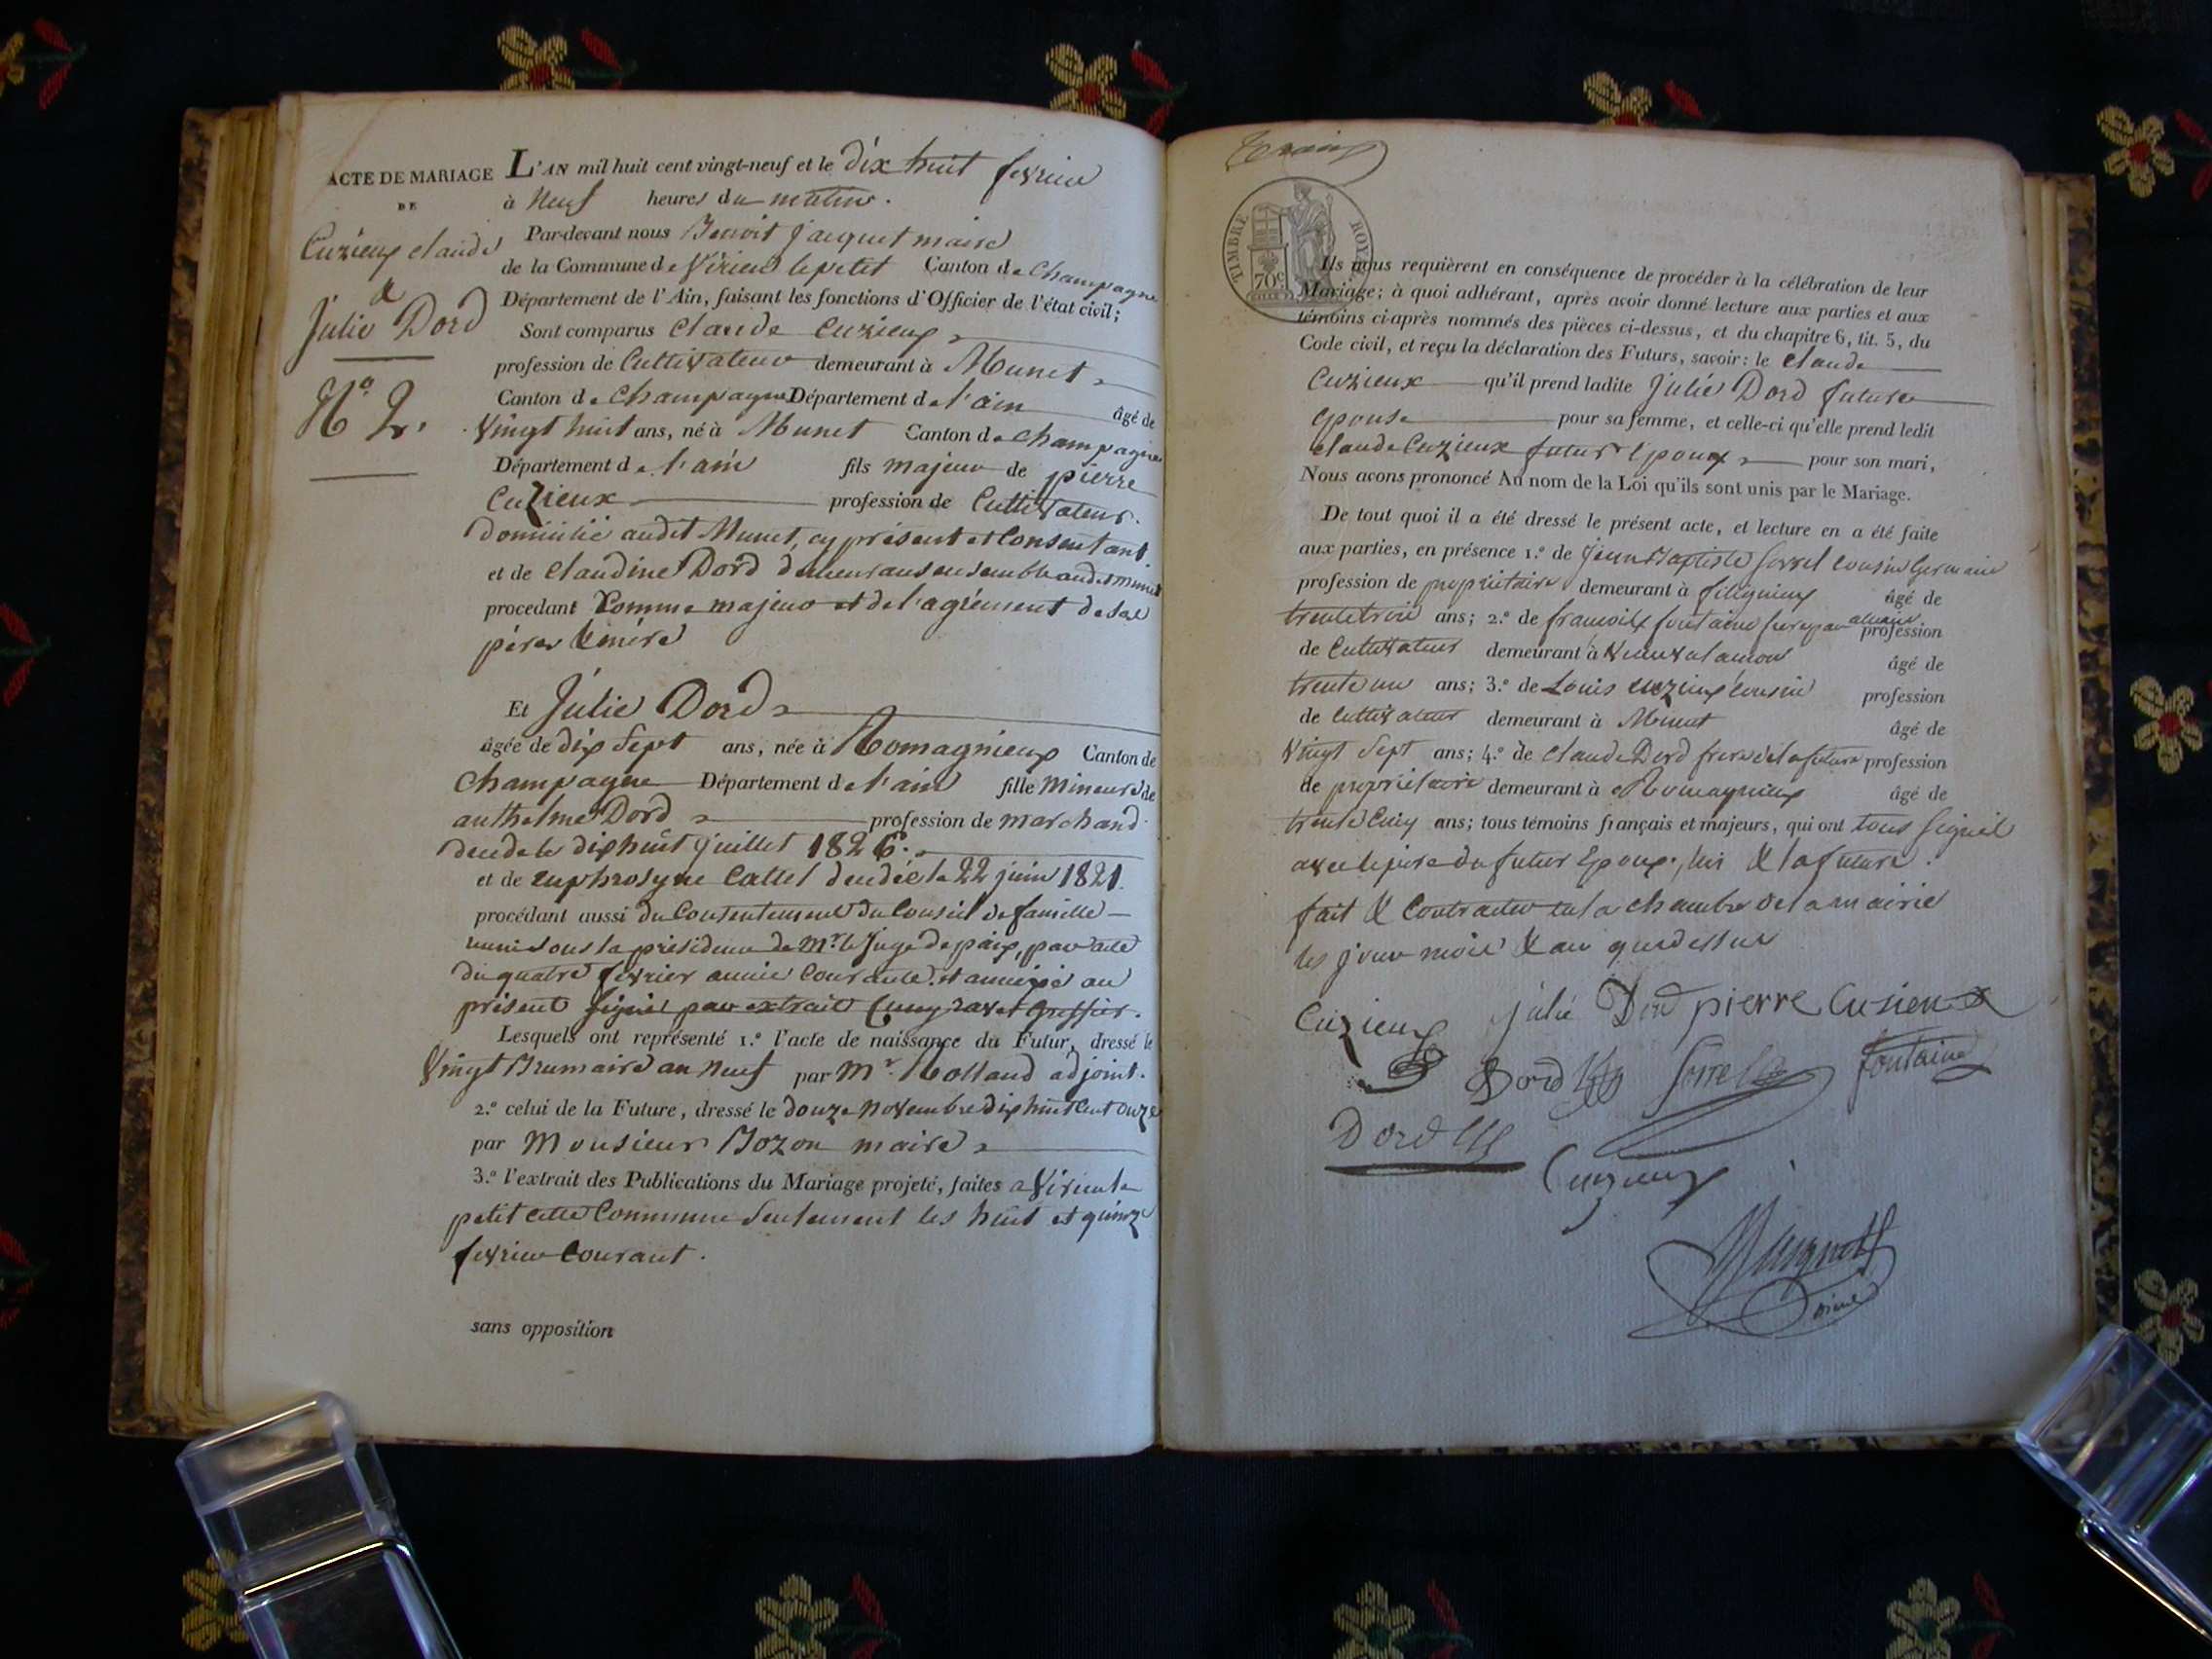 ACTE DE MARIAGE
DE
Cuzieux claude
&
Julie Dord
N.o 2.
L'AN mil huit cent vingt-neuf et le dix huit fevrier
à Neuf heures du matin.
Par-devant nous Benoit Jacquet maire
de la Commune de Virieu le petit Canton de Champagne
Département de l'Ain, faisant les fonctions d'Officier de l'état civil;
Sont comparus Claude Cuzieux
profession de Cultivateur demeurant à Munet
Canton de Champagne Département de l'ain âgé de
Vingt huit ans, né à Munet Canton de Champagne
Département de l'ain fils majeur de pierre
Cuzieux profession de Cultivateur.
domicilié audit Munet, cy présent et Consentant
et de Claudine Dord demeurans ensemble audit munet
procedant Comme majeur et de l'agrément de ses
père & mère
Et Julie Dord
âgée de dix Sept ans, née à Romagnieux Canton de
Champagne Département de l'ain fille Mineure de
anthelme Dord profession de marchand
decedé le dix huit juillet 1826.
et de Euphrosyne Callet decédée le 22 juin 1821.
procédant aussi du Consentement du Conseil de famille
réuni sous la présidence de Mr. le Juge de paix, par acte
du quatre fevrier année Courante et annexé au
présent signé par extrait greffier.
Lesquels ont représenté 1.o l'acte de naissance du Futur, dressé le
Vingt Brumaire an Neuf par Mr. Rolland adjoint.
2.o celui de la Future, dressé le douze Novembre dix huit Cent onze
par Monsieur Bozon maire
3.o l'extrait des Publications du Mariage projeté, faites a Virieu le
petit cette Commune Seulement les huit et quinze
fevrier Courant.
sans opposition
TIMBRE ROYAL
70c
Ils nous requièrent en conséquence de procéder à la célébration de leur
Mariage; à quoi adhérant, après avoir donné lecture aux parties et aux
témoins ci-après nommés des pièces ci-dessus, et du chapitre 6, tit. 5, du
Code civil, et reçu la déclaration des Futurs, savoir: le Claude
Cuzieux qu'il prend ladite Julie Dord future
Epouse pour sa femme, et celle-ci qu'elle prend ledit
Claude Cuzieux futur Epoux pour son mari,
Nous avons prononcé Au nom de la Loi qu'ils sont unis par le Mariage.
De tout quoi il a été dressé le présent acte, et lecture en a été faite
aux parties, en présence 1.o de Jean Baptiste Sorrel cousin Germain
profession de propriétaire demeurant à filignieux âgé de
trente trois ans; 2.o de francois fontaine frere par alliance profession
de Cultivateur demeurant à âgé de
trente un ans; 3.o de Louis Cuzieux cousin profession
de Cultivateur demeurant à Munet âgé de
Vingt Sept ans; 4.o de Claude Dord frere de la future profession
de propriétaire demeurant à Romagnieux âgé de
trente Cinq ans; tous témoins français et majeurs, qui ont tous Signés
avec le pere du futur Epoux, lui & la future.
fait & Contracter en la chambre de la mairie
les jour mois & an que dessus
Cuzieux julie Dord pierre Cusieux
Dord Sorrel fontaine
Dord
Cuzieux
Jacquet
Maire